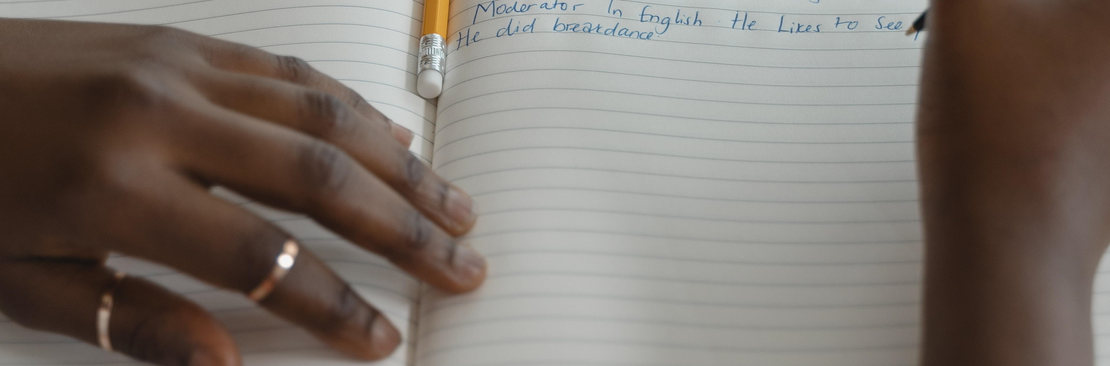 Moderator In English He Likes to see
He did breakdance